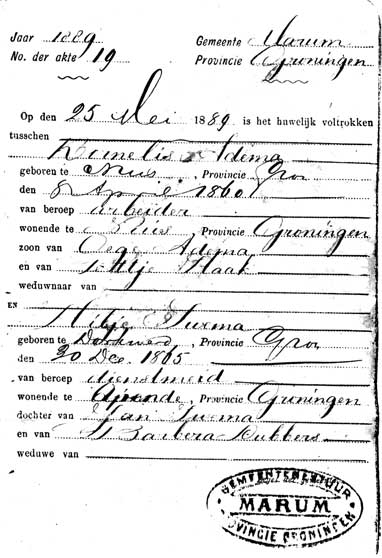 Jaar 1889 Gemeente Marum
No. der akte 19 Provincie Groningen
Op den 25 Mei 1889 is het huwelijk voltrokken
tusschen
Kornelis Adema
geboren te Nuis, Provincie Gron
den 8 April 1860
van beroep arbeider
wonende te Nuis, Provincie Groningen
zoon van Oege Adema
en van Haak
weduwnaar van
EN
Hiltje Turma
geboren te, Provincie Gron
den 20 Dec. 1865
van beroep dienstmeid
wonende te Opende, Provincie Groningen
dochter van Jan Turma
en van Barbera Dubbers
weduwe van
GEMEENTEBESTUUR
MARUM
PROVINCIE GRONINGEN